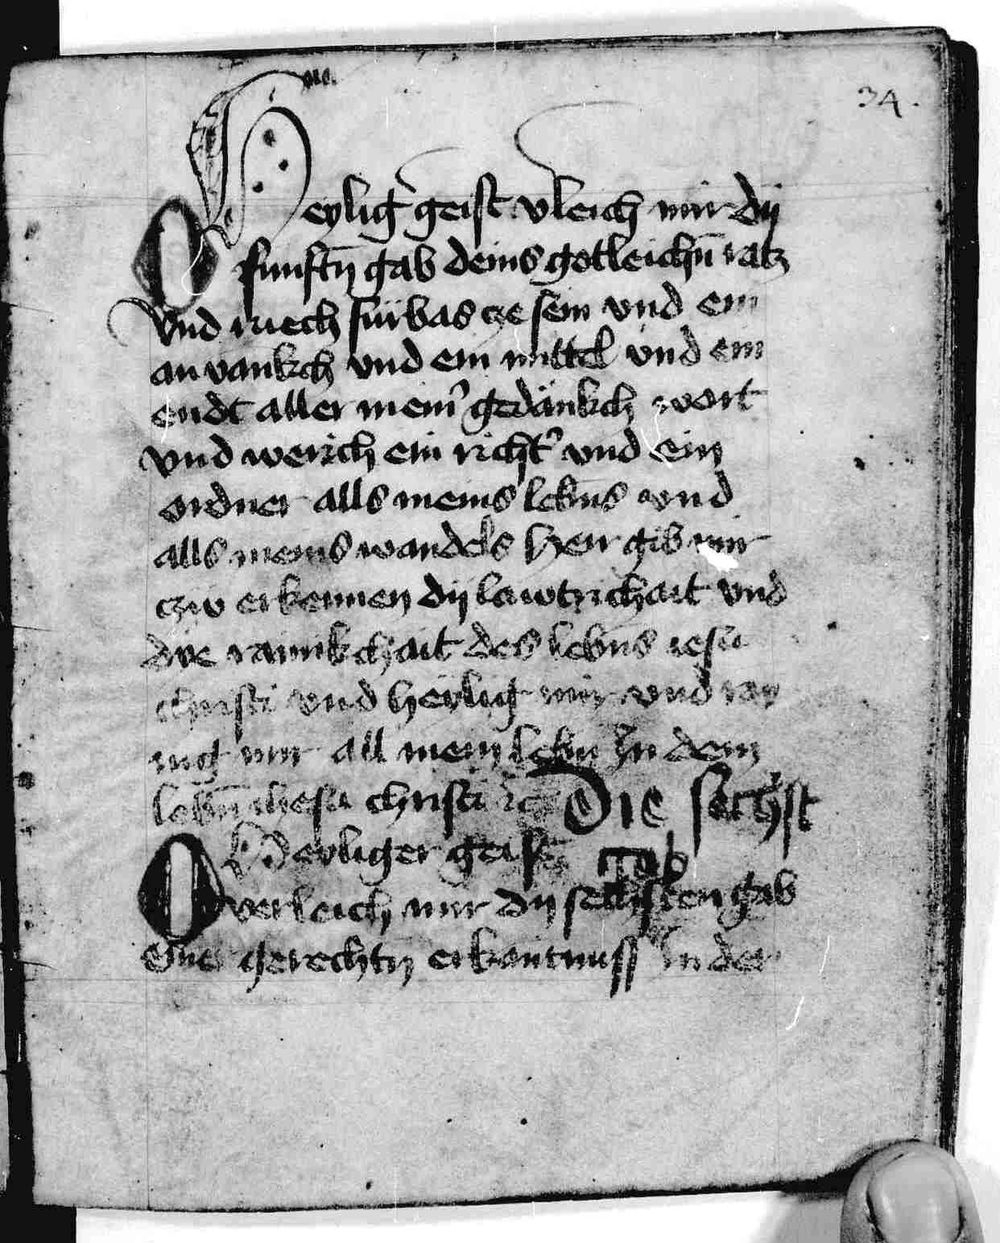 34.
O Heylig' geist vleich mir dij
funftn̄ gab deins gotleichn̄ ratz
vnd ruech furbas cze sein vnd ein
anvankch vnd ein mittel vnd ein
endt aller mein' gedankch wort
vnd werch ein richt' vnd ein
ordner alls meins lebn̄s vnd
alls meins wandels herr gib mir
czw erkennen dij lawtrichait vnd
die rainikchait des lebn̄s iesu
christi vnd heylig mir vnd ray
nig mir all mein lebn̄ In dem
lebn̄ ihesu christi Die sechst
O Heyliger geist gab
verleich mir dij sechsten gab
einer gerechtn̄ erkantnuss In der